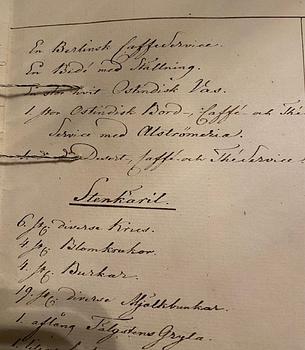 En Berlinsk Caffe Service.
En Bedé med Ställning.
En stor hvit Ostindisk Vas.
1 stor Ostindisk Bord-, Caffé- och Thé
Service med Alströmeria.
Desert, Caffe- och Thé Service
Stenkäril.
6 st. diverse Krus.
4 st. Blomkrukor.
4 st. Burkar.
19 st. diverse Mjölkbunkar.
1. aflång Täljstens Gryta.